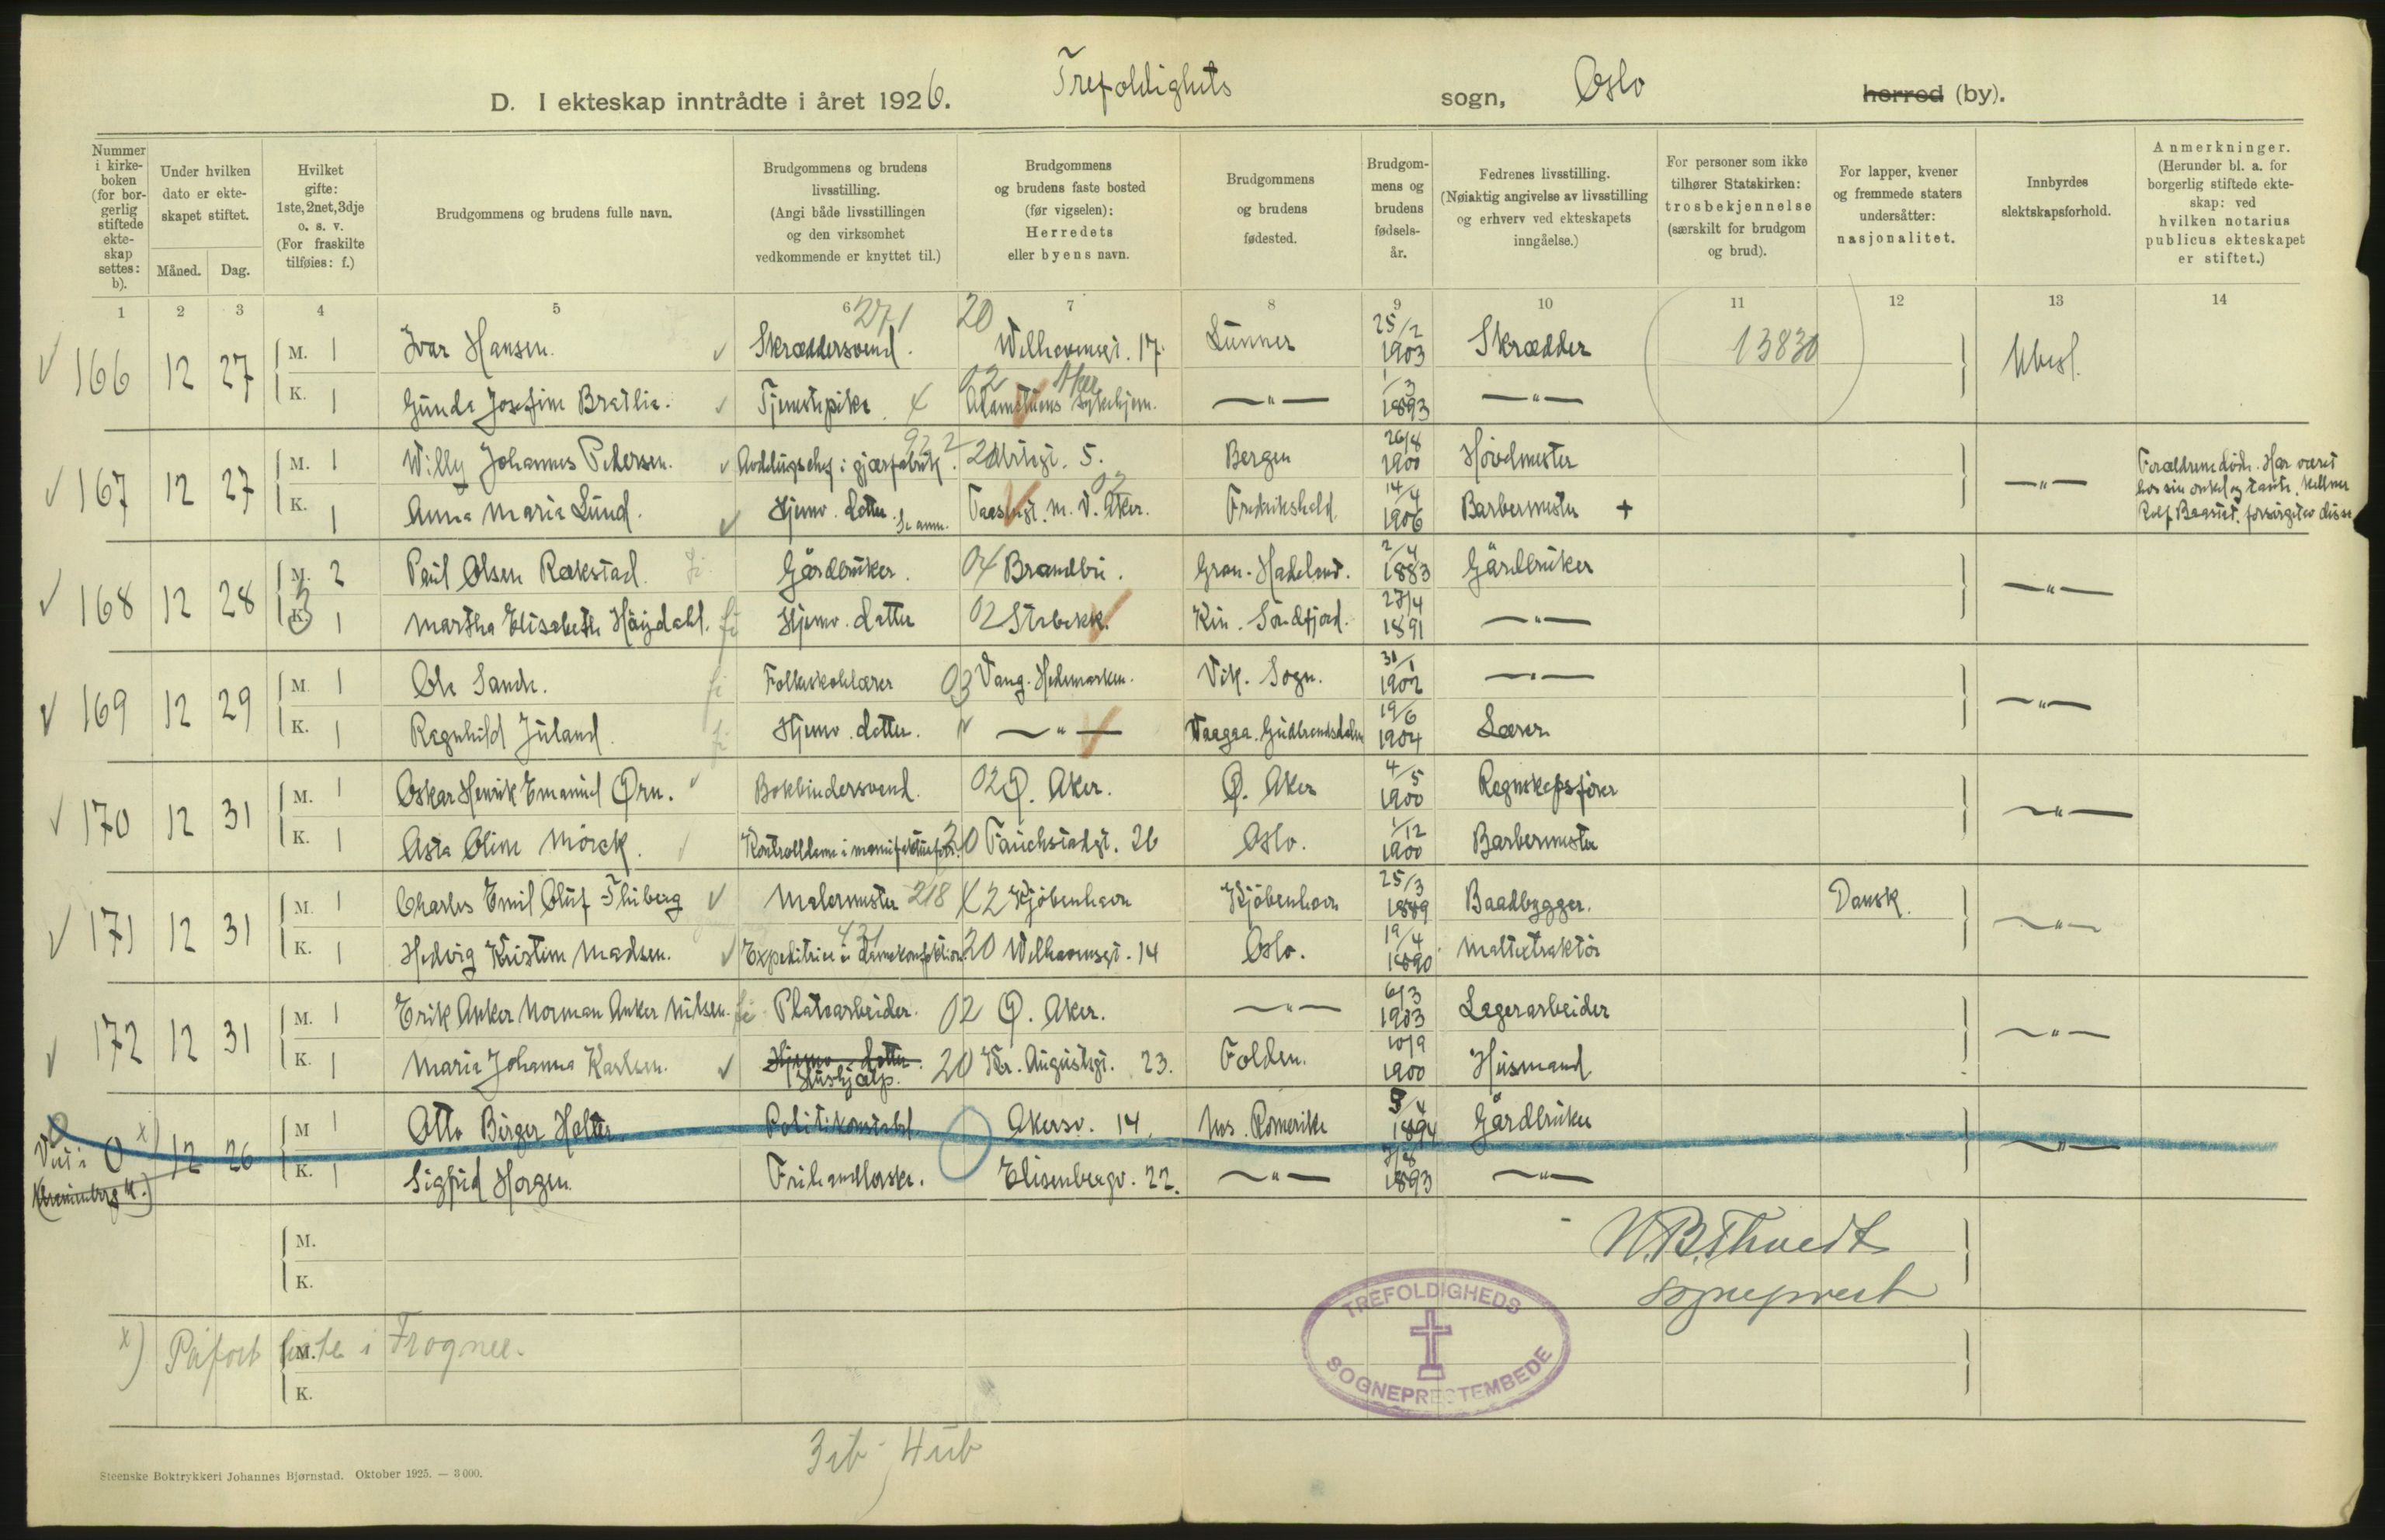 D. I ekteskap inntrådte i året 1926. Trefoldighets sogn, Oslo herred (by).
Nummer i kirkeboken (for borgerlig stiftede ekteskap settes: b).
Under hvilken dato er ekteskapet stiftet.
Måned. Dag.
Hvilket gifte: 1ste, 2net, 3dje o. s. v. (For fraskilte tilføies: f.)
Brudgommens og brudens fulle navn.
Brudgommens og brudens livsstilling. (Angi både livsstillingen og den virksomhet vedkommende er knyttet til.)
Brudgommens og brudens faste bosted (før vigselen): Herredets eller byens navn.
Brudgommens og brudens fødested.
Brudgommens og brudens fødselsår.
Fedrenes livsstilling. (Nøiaktig angivelse av livsstilling og erhverv ved ekteskapets inngåelse.)
For personer som ikke tilhører Statskirken: trosbekjennelse (særskilt for brudgom og brud).
For lapper, kvener og fremmede staters undersåtter: nasjonalitet.
Innbyrdes slektskapsforhold.
Anmerkninger. (Herunder bl. a. for borgerlig stiftede ekteskap: ved hvilken notarius publicus ekteskapet er stiftet.)
1 2 3 4 5 6 7 8 9 10 11 12 13 14
271 20
166 12 27 M. 1 Ivar Hansen. Skræddersvend. Welhavensgt. 17. Lunner 25/2 1903 Skrædder 13830 Ubesl.
K. 1 Gunda Josefine Bratlie. Tjenestepike 02 Aker Adamstuens Sykehjem. —"— 1/3 1893 —"—
167 12 27 M. 1 Willy Johannes Pedersen. Avdelingschef i gjærfabrik. 5. Bergen 26/8 1900 Hovedmester —"—
K. 1 Anna Maria Lund. Hjemv. datter. Se anm. 02 m. V. Aker. Fredrikshald 14/4 1906 Barbermester +
Forældrene døde. Har været hos sin onkel og tante, kellner Rolf forsørget av disse
168 12 28 M. 2 Paul Olsen Rækstad. Gårdbruker. 04 Brandbu. Gran. Hadeland. 2/4 1883 Gårdbruker —"—
K. 1 Martha Elisabeth Høydahl. Hjemv. datter 02 Stabekk. Kin. Søndfjord. 27/4 1891 —"—
169 12 29 M. 1 Ole Sande. Folkeskolelærer 03 Vang. Hedemarken. Vik. Sogn. 31/1 1902 —"— —"—
K. 1 Ragnhild Juland. Hjemv. datter. —"— Vaagaa. Gudbrandsdalen 19/6 1904 Lærer
170 12 31 M. 1 Oskar Henrik Emanuel Ørn. Bokbindersvend. 02 Ø. Aker. Ø. Aker 4/5 1900 Regnskapsfører —"—
K. 1 Asta Oline Mørck. Kontrolldame i manufakturforr. 20 Fauchaldsgt. 26 Oslo. 1/12 1900 Barbermester
171 12 31 M. 1 Charles Emil Oluf Thuberg Malermester 218 Kjøbenhavn Kjøbenhavn 25/3 1889 Baadbygger. Dansk. —"—
K. 1 Hedvig Kristine Madsen. Expeditrice i damekonfektion 20 Welhavensgt. 14 Oslo. 19/4 1890 Maltextraktør
172 12 31 M. 1 Erik Anker Norman Anker Nilsen. Platearbeider. 02 Ø. Aker. —"— 6/3 1903 Lagerarbeider —"—
K. 1 Marie Johanna Karlsen. Hjemv. datter. Hushjælp. 20 Kr. Augustsgt. 23. Folden. 10/9 1900 Husmand
Viet i 0 x) 12 26 M 1 Otto Birger Holter. Politikonstabel. Akersv. 14. Nes. Romerike 5/4 1894 Gårdbruker —"—
K. 1 Sigfrid Horgen. Frihandlerske. Elisenbergv. 22. —"— 7/8 1893 —"—
M.
K.
N.B. Thvedt
sogneprest
TREFOLDIGHEDS
SOGNEPRESTEMBEDE
x) Påført liste i Frogner.
M.
K.
3 ib 4 ub
Steenske Boktrykkeri Johannes Bjørnstad. Oktober 1925. — 3000.